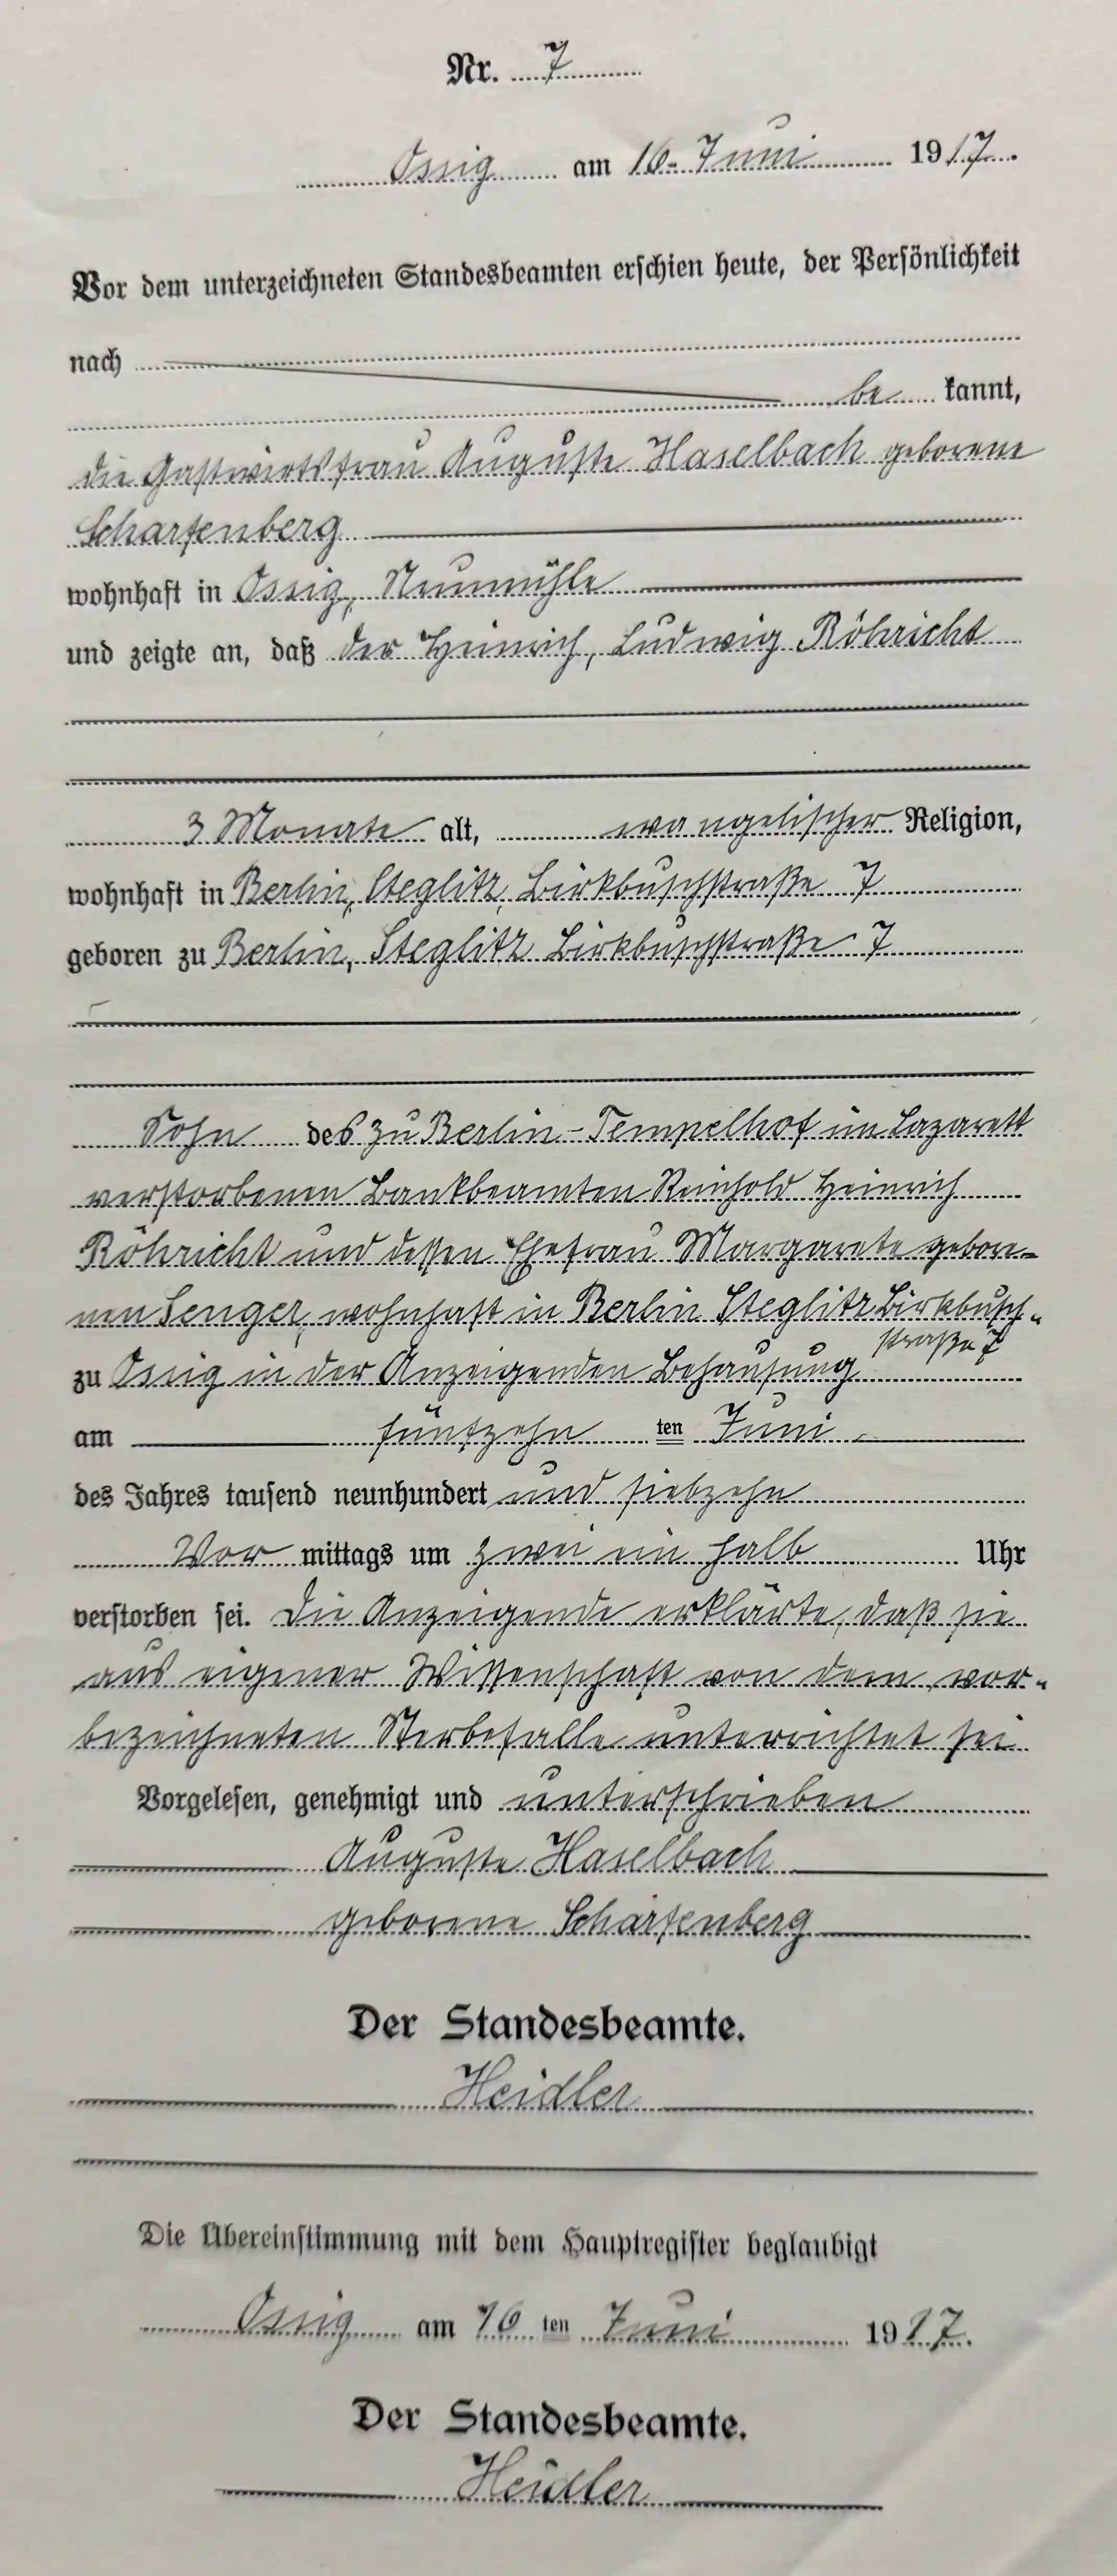 Nr. 7
Ossig am 16. Juni 1917.
Vor dem unterzeichneten Standesbeamten erschien heute, der Persönlichkeit
nach
be kannt,
die Gastwirtsfrau Auguste Haselbach geborene
Scharfenberg
wohnhaft in Ossig, Neumühle
und zeigte an, daß der Heinrich, Ludwig Röhricht
3 Monate alt, evangelischer Religion,
wohnhaft in Berlin, Steglitz, Birkbuschstraße 7
geboren zu Berlin, Steglitz Birkbuschstraße 7
Sohn des zu Berlin-Tempelhof im Lazarett
verstorbenen Bankbeamten Reinhold Heinrich
Röhricht und dessen Ehefrau Margarete gebore-
nen Senger, wohnhaft in Berlin Steglitz Birkbusch-
straße 7
zu Ossig in der Anzeigenden Behausung
am fünfzehn ten Juni
des Jahres tausend neunhundert und siebzehn
Vor mittags um zwei ein halb Uhr
verstorben sei. Die Anzeigende erklärte, daß sie
aus eigener Wissenschaft von dem vor-
bezeichneten Sterbefalle unterrichtet sei
Vorgelesen, genehmigt und unterschrieben
Auguste Haselbach
geborene Scharfenberg
Der Standesbeamte.
Heidler
Die Übereinstimmung mit dem Hauptregister beglaubigt
Ossig am 16 ten Juni 1917.
Der Standesbeamte.
Heidler